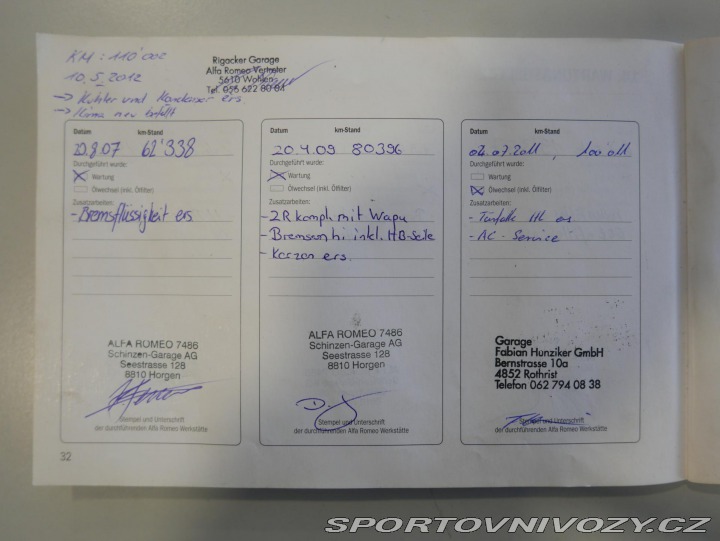 KM: 110'002
10.5.2012
→ Kühler und Kondensor ers.
→ Klima neu befüllt
Rigacker Garage
Alfa Romeo Vertreter
5610 Wohlen
Tel. 056 622 80 04
Datum km-Stand
29.8.07 62'338
Durchgeführt wurde:
Wartung
Ölwechsel (inkl. Ölfilter)
Zusatzarbeiten:
- Bremsflüssigkeit ers
ALFA ROMEO 7486
Schinzen-Garage AG
Seestrasse 128
8810 Horgen
Stempel und Unterschrift
der durchführenden Alfa Romeo Werkstätte
Datum km-Stand
20.4.09 80396
Durchgeführt wurde:
Wartung
Ölwechsel (inkl. Ölfilter)
Zusatzarbeiten:
- ZR kompl. mit Wapu
- Bremsen hi inkl. HB-Seile
- Kerzen ers.
ALFA ROMEO 7486
Schinzen-Garage AG
Seestrasse 128
8810 Horgen
Stempel und Unterschrift
der durchführenden Alfa Romeo Werkstätte
Datum km-Stand
04.07.2011 100'011
Durchgeführt wurde:
Wartung
Ölwechsel (inkl. Ölfilter)
Zusatzarbeiten:
- AC - Service
Garage
Fabian Hunziker GmbH
Bernstrasse 10a
4852 Rothrist
Telefon 062 794 08 38
Stempel und Unterschrift
der durchführenden Alfa Romeo Werkstätte
32
SPORTOVNIVOZY.CZ